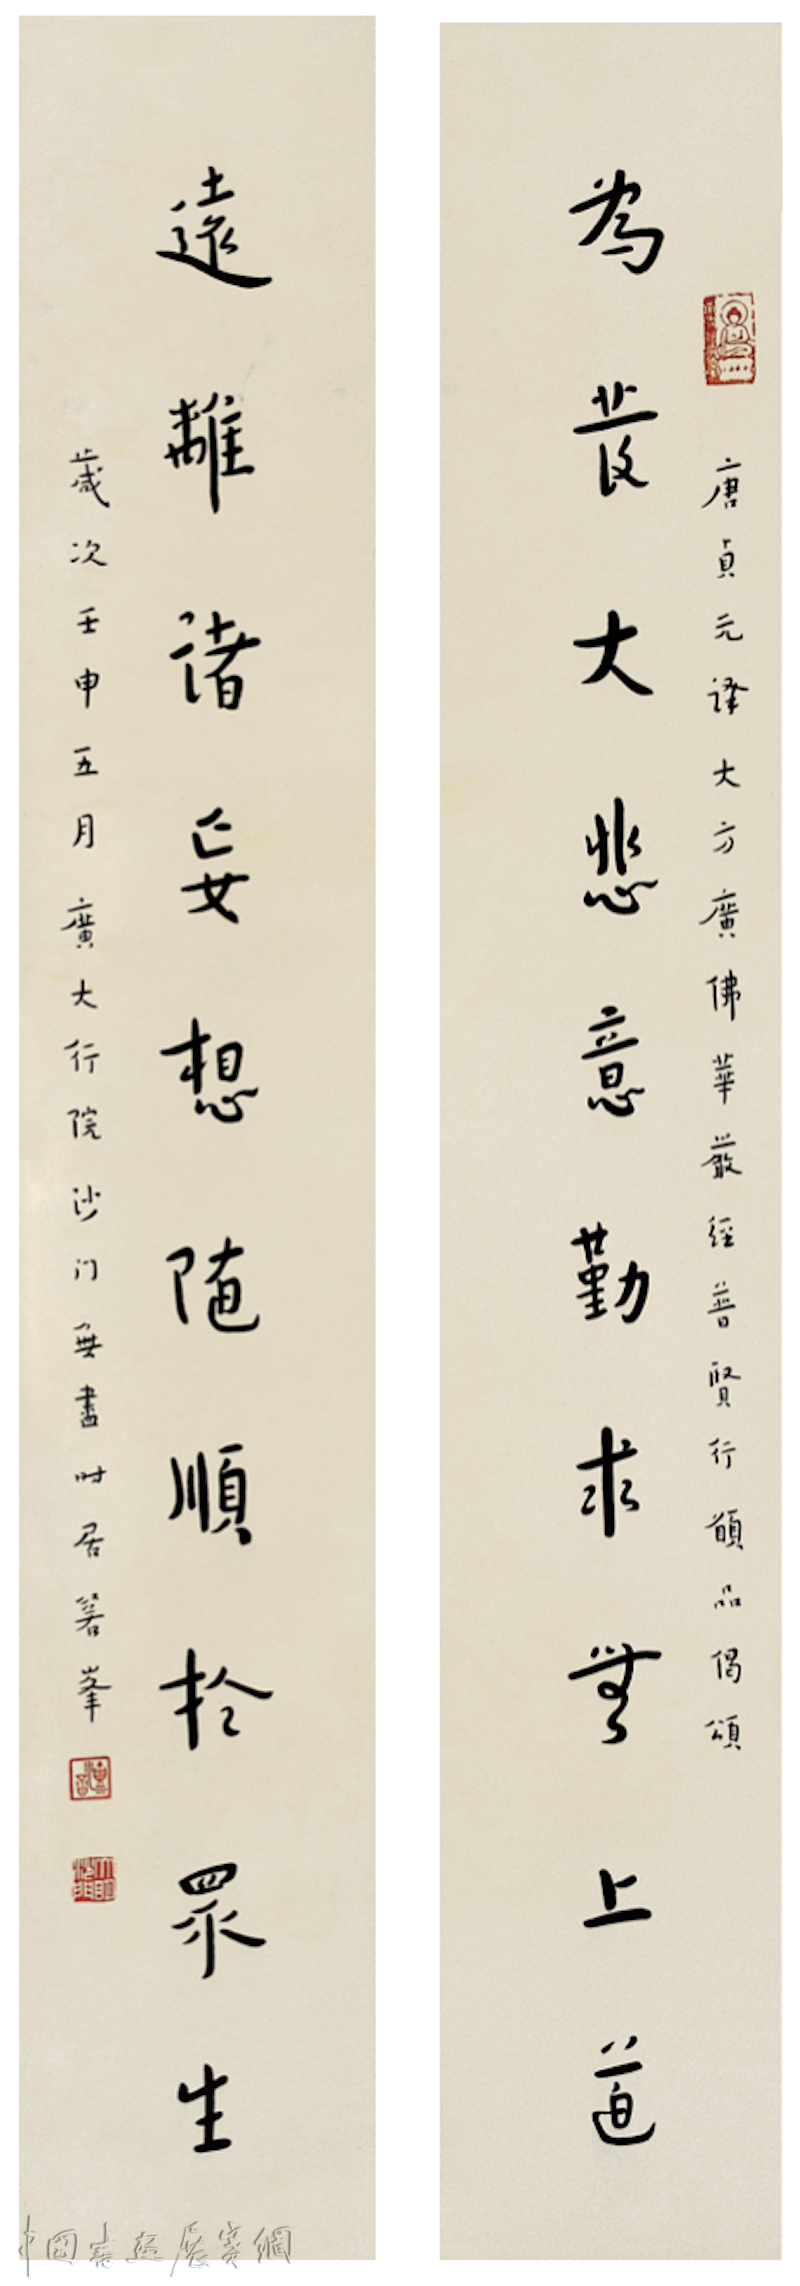 唐貞元譯大方廣佛華嚴經普賢行願品偈頌
為發大悲意勤求無上道
遠離諸妄想隨順於眾生
歲次壬申五月廣大行院沙門無盡時居箬峯
中國書畫展賽網